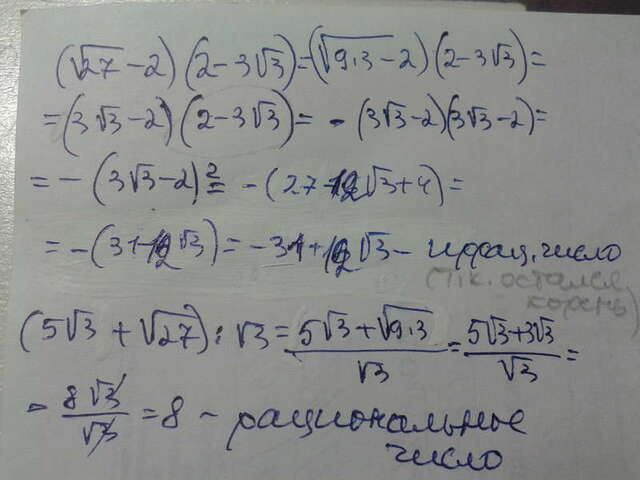 (√27 - 2)(2 - 3√3) = (√9·3 - 2)(2 - 3√3) =
= (3√3 - 2)(2 - 3√3) = - (3√3 - 2)(3√3 - 2) =
= - (3√3 - 2)² = - (27 - 12√3 + 4) =
= - (31 - 12√3) = - 31 + 12√3 - иррац. число
(т.к. остался
корень)
(5√3 + √27) : √3 = (5√3 + √9·3)/√3 = (5√3 + 3√3)/√3 =
= 8√3/√3 = 8 - рациональное
число